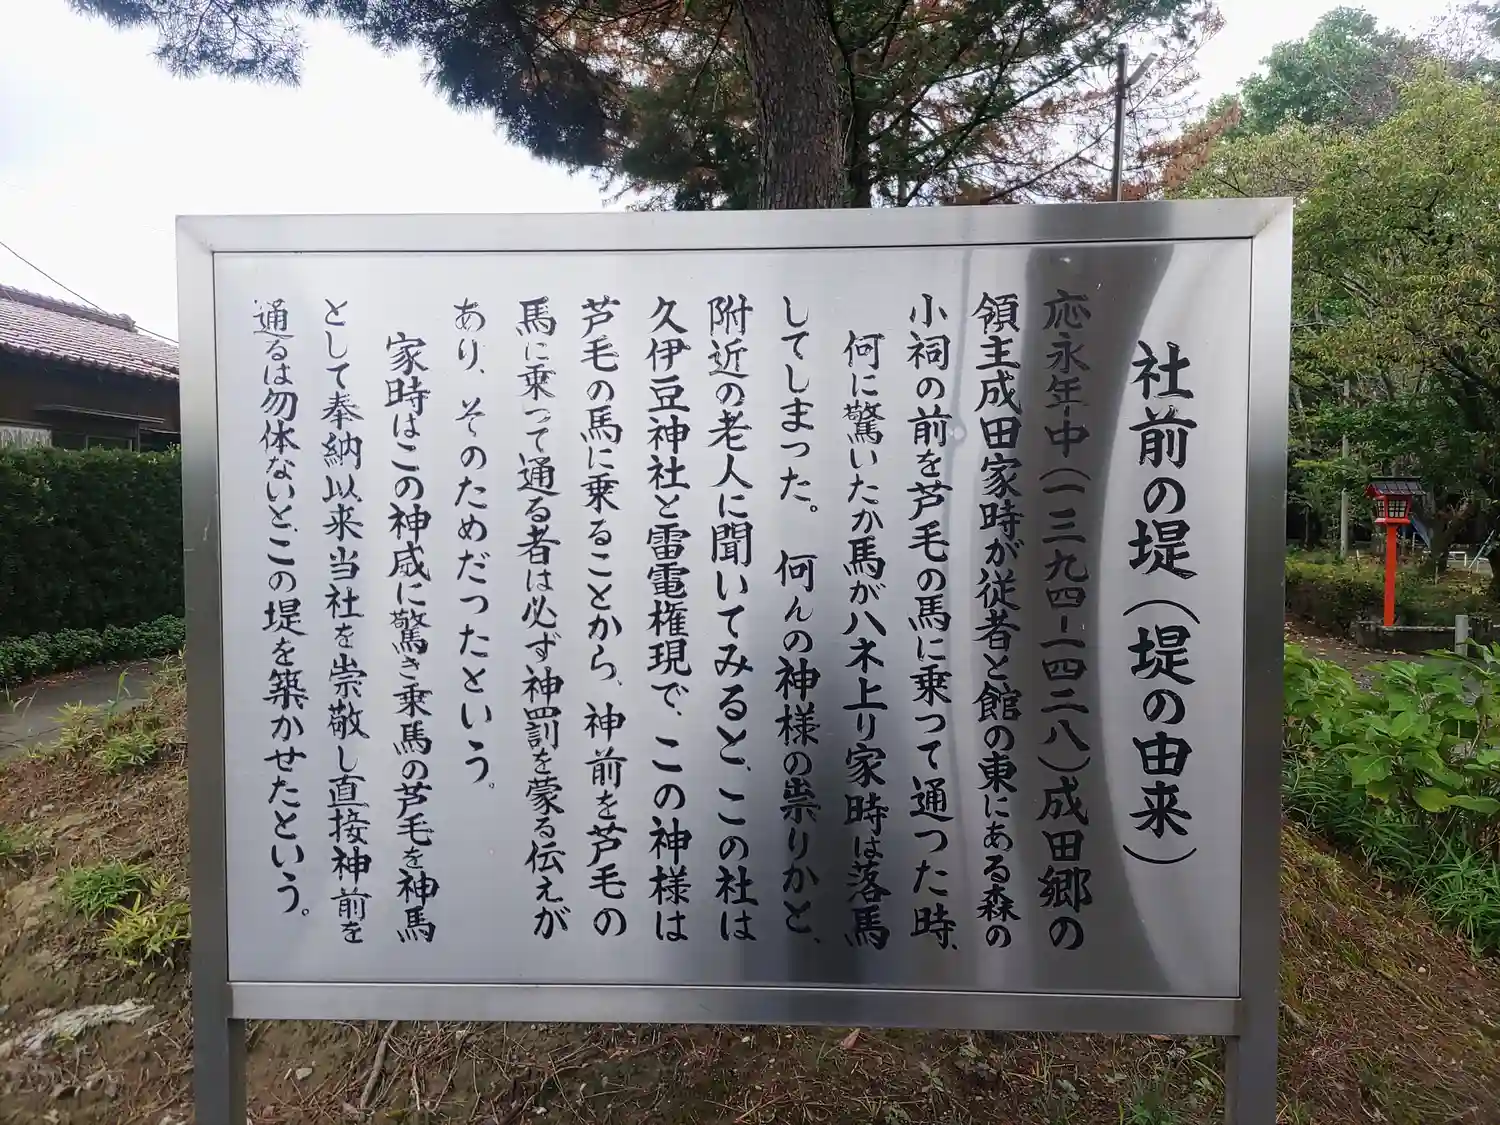 社前の堤（堤の由来）
応永年中（一三九四-一四二八）成田郷の
領主成田家時が従者と館の東にある森の
小祠の前を芦毛の馬に乗って通った時、
何に驚いたか馬がハネ上り家時は落馬
してしまった。何んの神様の祟りかと、
附近の老人に聞いてみると、この社は
久伊豆神社と雷電権現で、この神様は
芦毛の馬に乗ることから、神前を芦毛の
馬に乗って通る者は必ず神罰を蒙る伝えが
あり、そのためだったという。
家時はこの神威に驚き乗馬の芦毛を神馬
として奉納以来当社を崇敬し直接神前を
通るは勿体ないと、この堤を築かせたという。